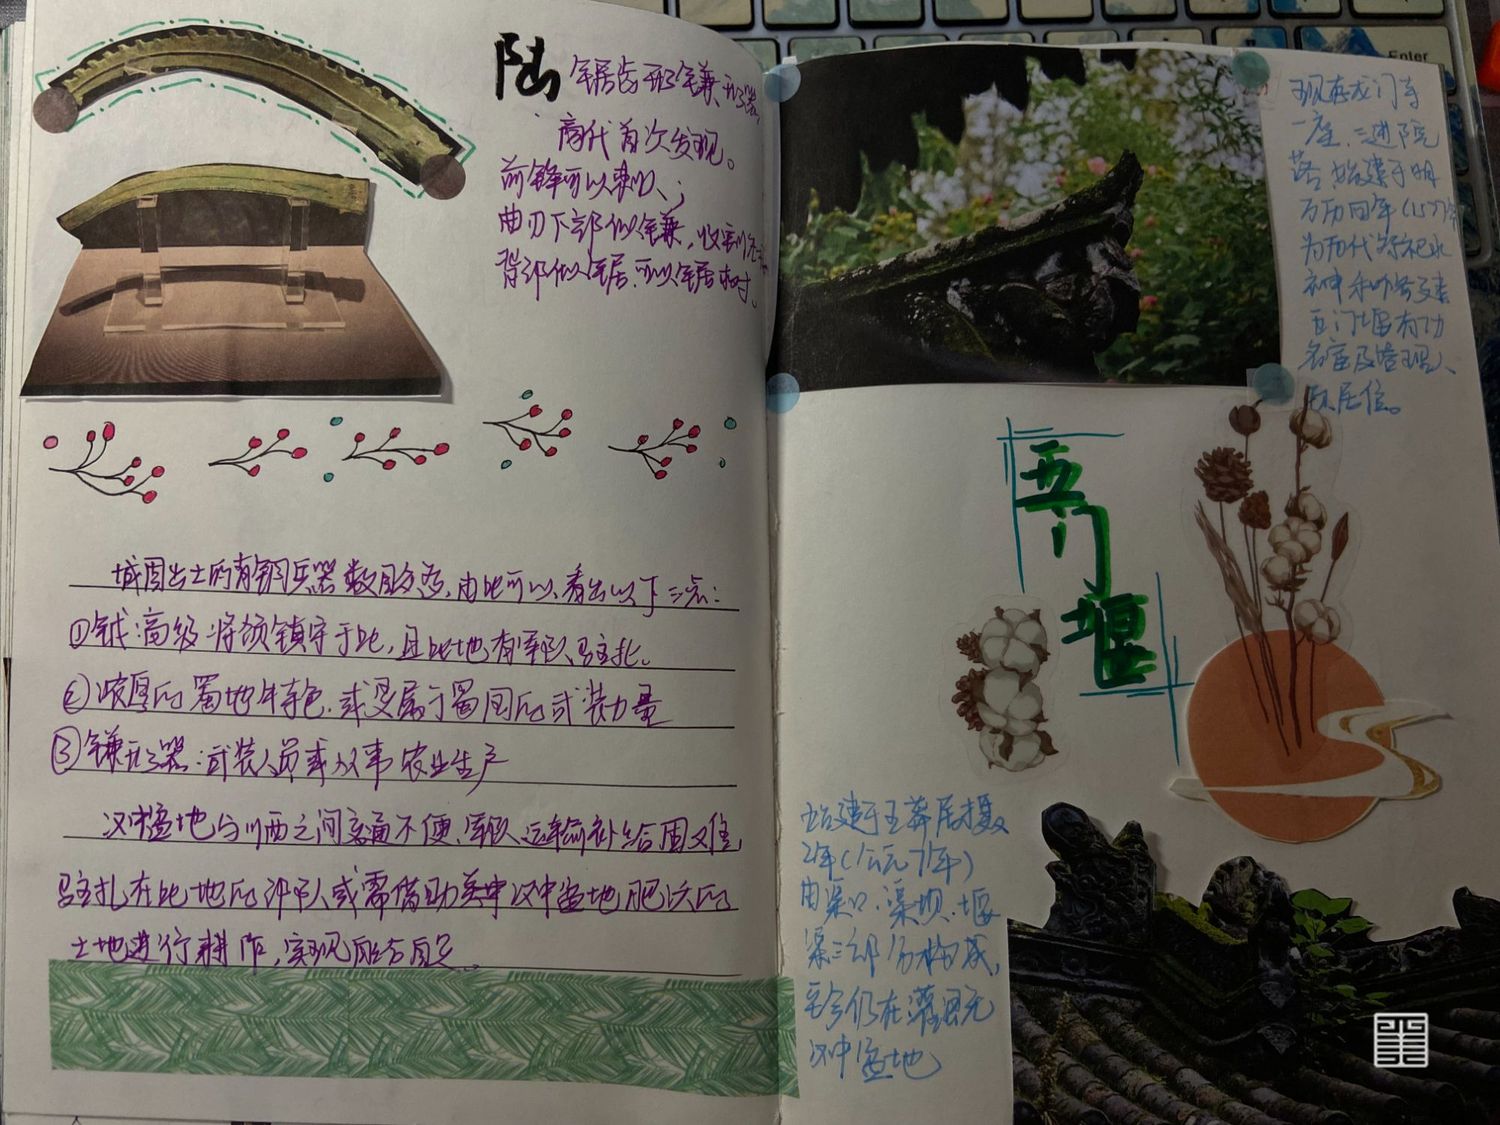 陆
锯齿形镰形器,
商代首次发现。
前锋可以
曲刃下部似镰,收割
背部似锯,可以锯树。
城固出土的青铜兵器数目多,由此可以看出以下三点:
①钺:高级将领镇守于此,且此地有军队驻扎。
②浓厚的蜀地特色,或受属于蜀国的武装力量
③镰形器:武装人员或从事农业生产
汉中盆地与川西之间交通不便,军队运输补给困难,
驻扎在此地的军队或需借助汉中盆地肥沃的
土地进行耕作,实现自给自足。
现存龙门寺
一座,三进院
落,始建于明
万历四年(157
为历代祭祀水
神和修建
五门堰有功
名宦及管理人
员居住。
五门堰
始建于王莽居摄
2年(公元7年)
由渠口、渠坝、堰
渠三部分构成,
至今仍在灌溉
汉中盆地